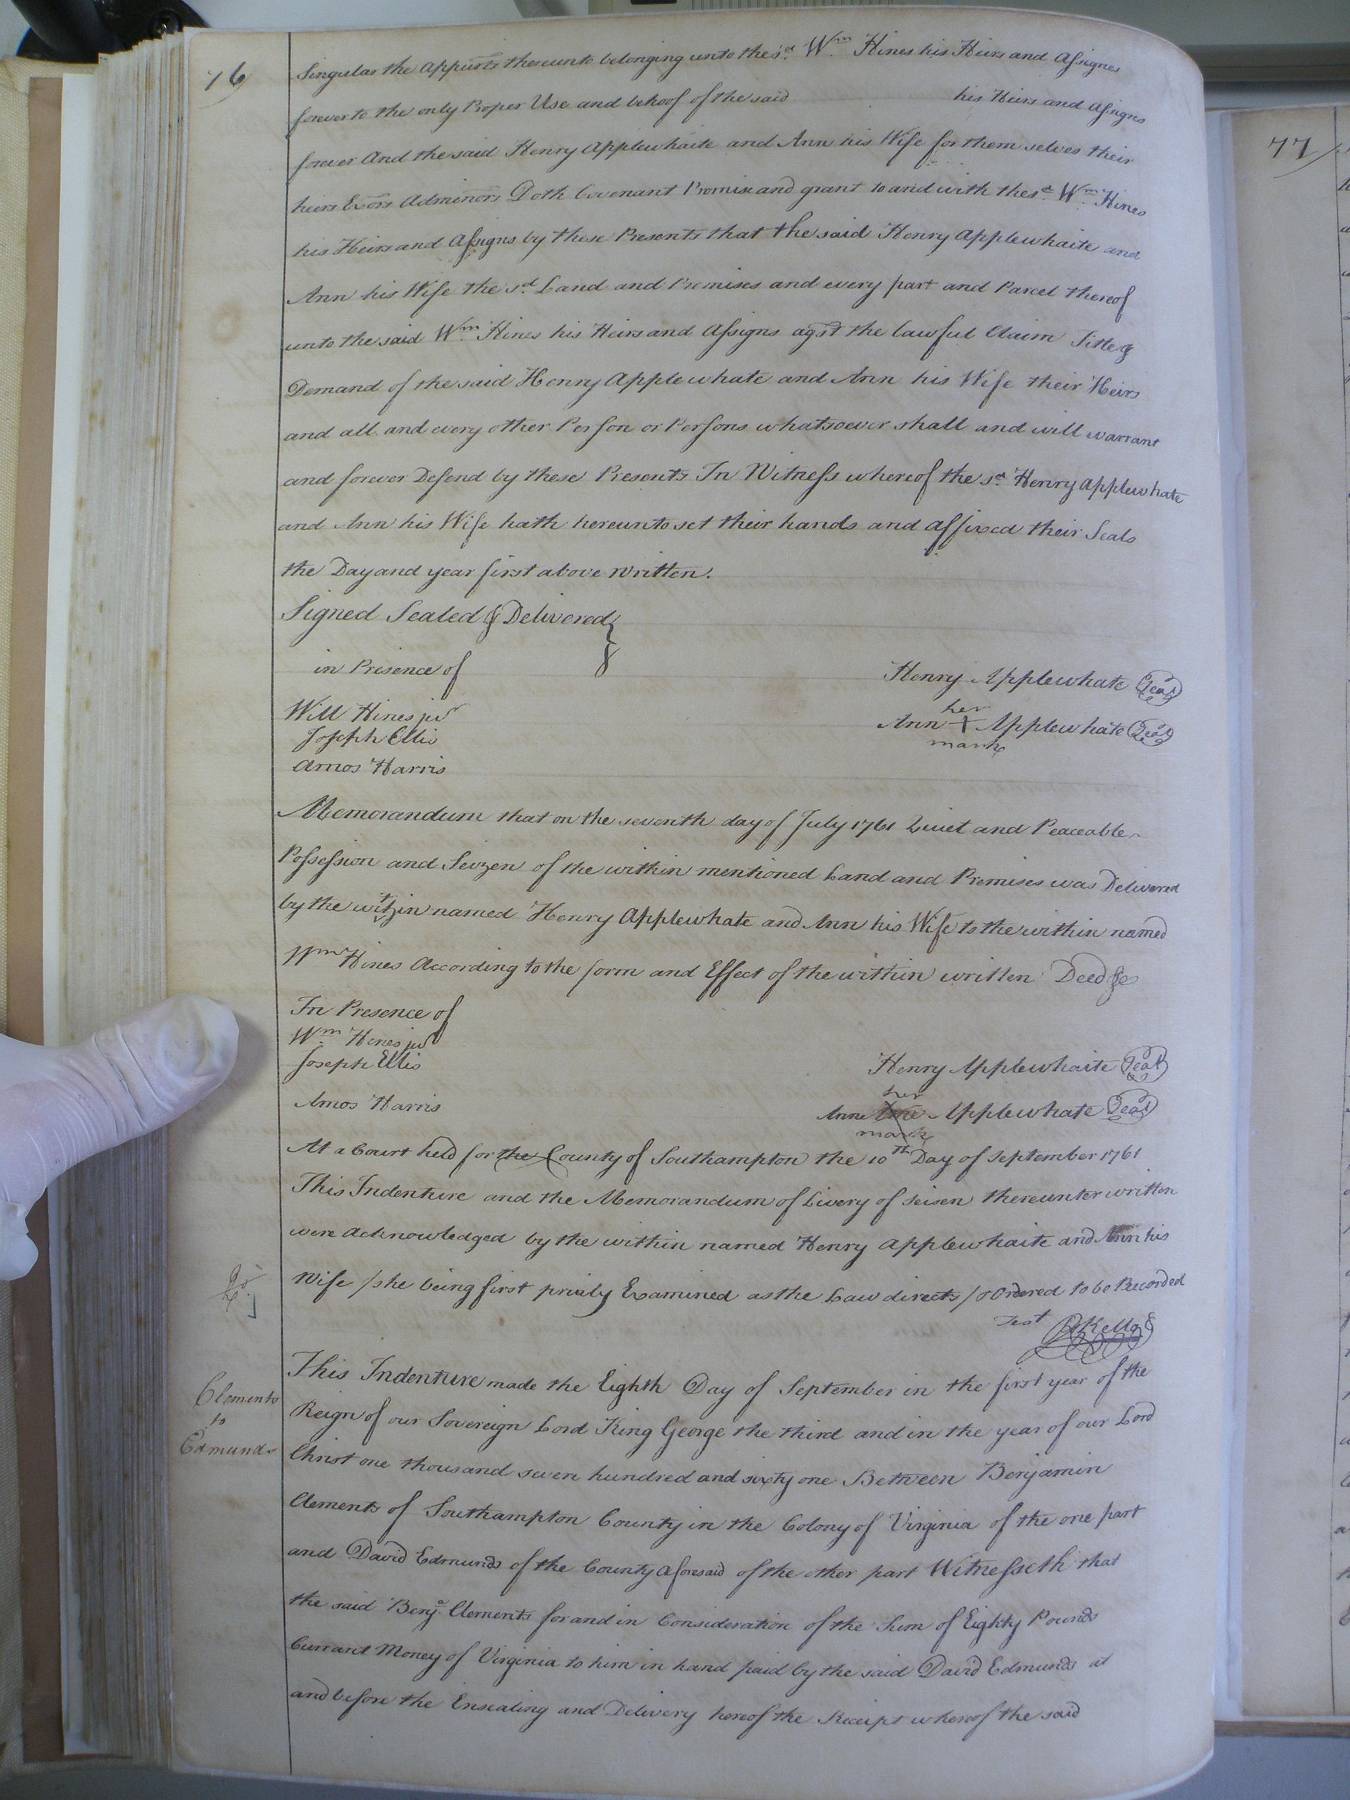 76
Singular the Appurts thereunto belonging unto the sd. Wm Hines his Heirs and Assignes
forever to the only Proper Use and behoof of the said his Heirs and Assigns
forever And the said Henry Applewhaite and Ann his Wife for them selves their
heirs Exors Adminors Doth Covenant Promise and grant to and with the sd. Wm Hines
his Heirs and Assigns by these Presents that the said Henry Applewhaite and
Ann his Wife the sd. Land and Premises and every part and Parcel thereof
unto the said Wm Hines his Heirs and Assigns agst the lawful Claim Title &
Demand of the said Henry Applewhate and Ann his Wife their Heirs
and all and every other Person or Persons whatsoever shall and will warrant
and forever Defend by these Presents In Witness whereof the sd. Henry Applewhate
and Ann his Wife hath hereunto set their hands and affixed their Seals
the Day and year first above Written.
Signed Sealed & Delivered
in Presence of
Henry Applewhate Seal
Will Hines junr
her
Ann + Applewhate Seal
mark
Joseph Ellis
Amos Harris
Memorandum that on the seventh day of July 1761 Quiet and Peaceable
Possession and Seizen of the within mentioned Land and Premises was Delivered
by the within named Henry Applewhate and Ann his Wife to the within named
Wm Hines According to the form and Effect of the within written Deed &c
In Presence of
Wm Hines junr
Joseph Ellis
Henry Applewhaite Seal
Amos Harris
her
Ann Applewhate Seal
mark
At a Court held for the County of Southampton the 10th Day of September 1761
This Indenture and the Memorandum of Livery of Seisen thereunter written
were Acknowledged by the within named Henry Applewhaite and Ann his
Wife /she being first privily Examined as the Law directs/ & Ordered to be Recorded
Test
This Indenture made the Eighth Day of September in the first year of the
Clements
to
Edmunds
Reign of our Sovereign Lord King George the third and in the year of our Lord
Christ one thousand seven hundred and sixty one Between Benjamin
Clements of Southampton County in the Colony of Virginia of the one part
and David Edmunds of the County aforesaid of the other part Witnesseth that
the said Benja. Clements for and in Consideration of the Sum of Eighty Pounds
Currant Money of Virginia to him in hand paid by the said David Edmunds at
and before the Ensealing and Delivery hereof the Receipt whereof the said
77